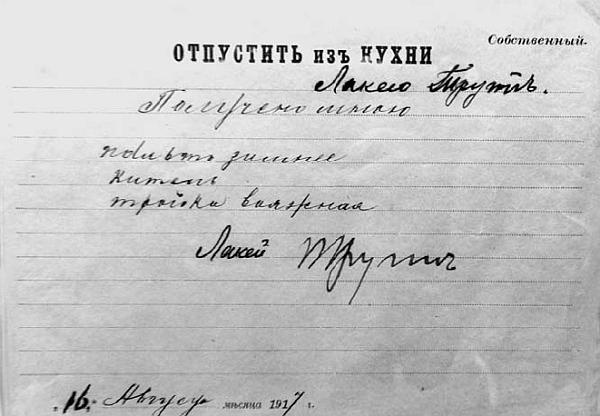 Собственный.
ОТПУСТИТЬ изъ КУХНИ
Лакею Труппъ.
Получено мною
пальто зимнее
китель
тройка вояжная
Лакей Труппъ
16. Августъ мѣсяца 1917 г.